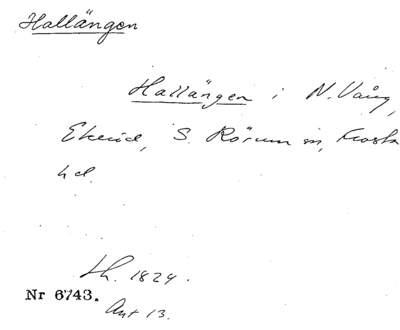 Hallängen
Hallängen i N. Vång,
Ekeröd, S. Rörum sn, Frosta
hd.
Lh. 1824.
Nr 6743.
Akt 13.